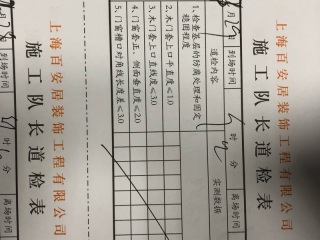 上海百安居装饰工程有限公司
施工队长道检表
月 日 到场时间 时 分 离场时间
道检内容 实测数据
1、检查基层的防腐处理和固定
稳固程度
2、木门套上口平直度≤1.0
3、木门套上口直线度≤3.0
4、门窗套正、侧面垂直度≤2.0
5、门窗槽口对角线长度差≤3.0
上海百安居装饰工程有限公司
施工队长道检表
到场时间 时 分 离场时间